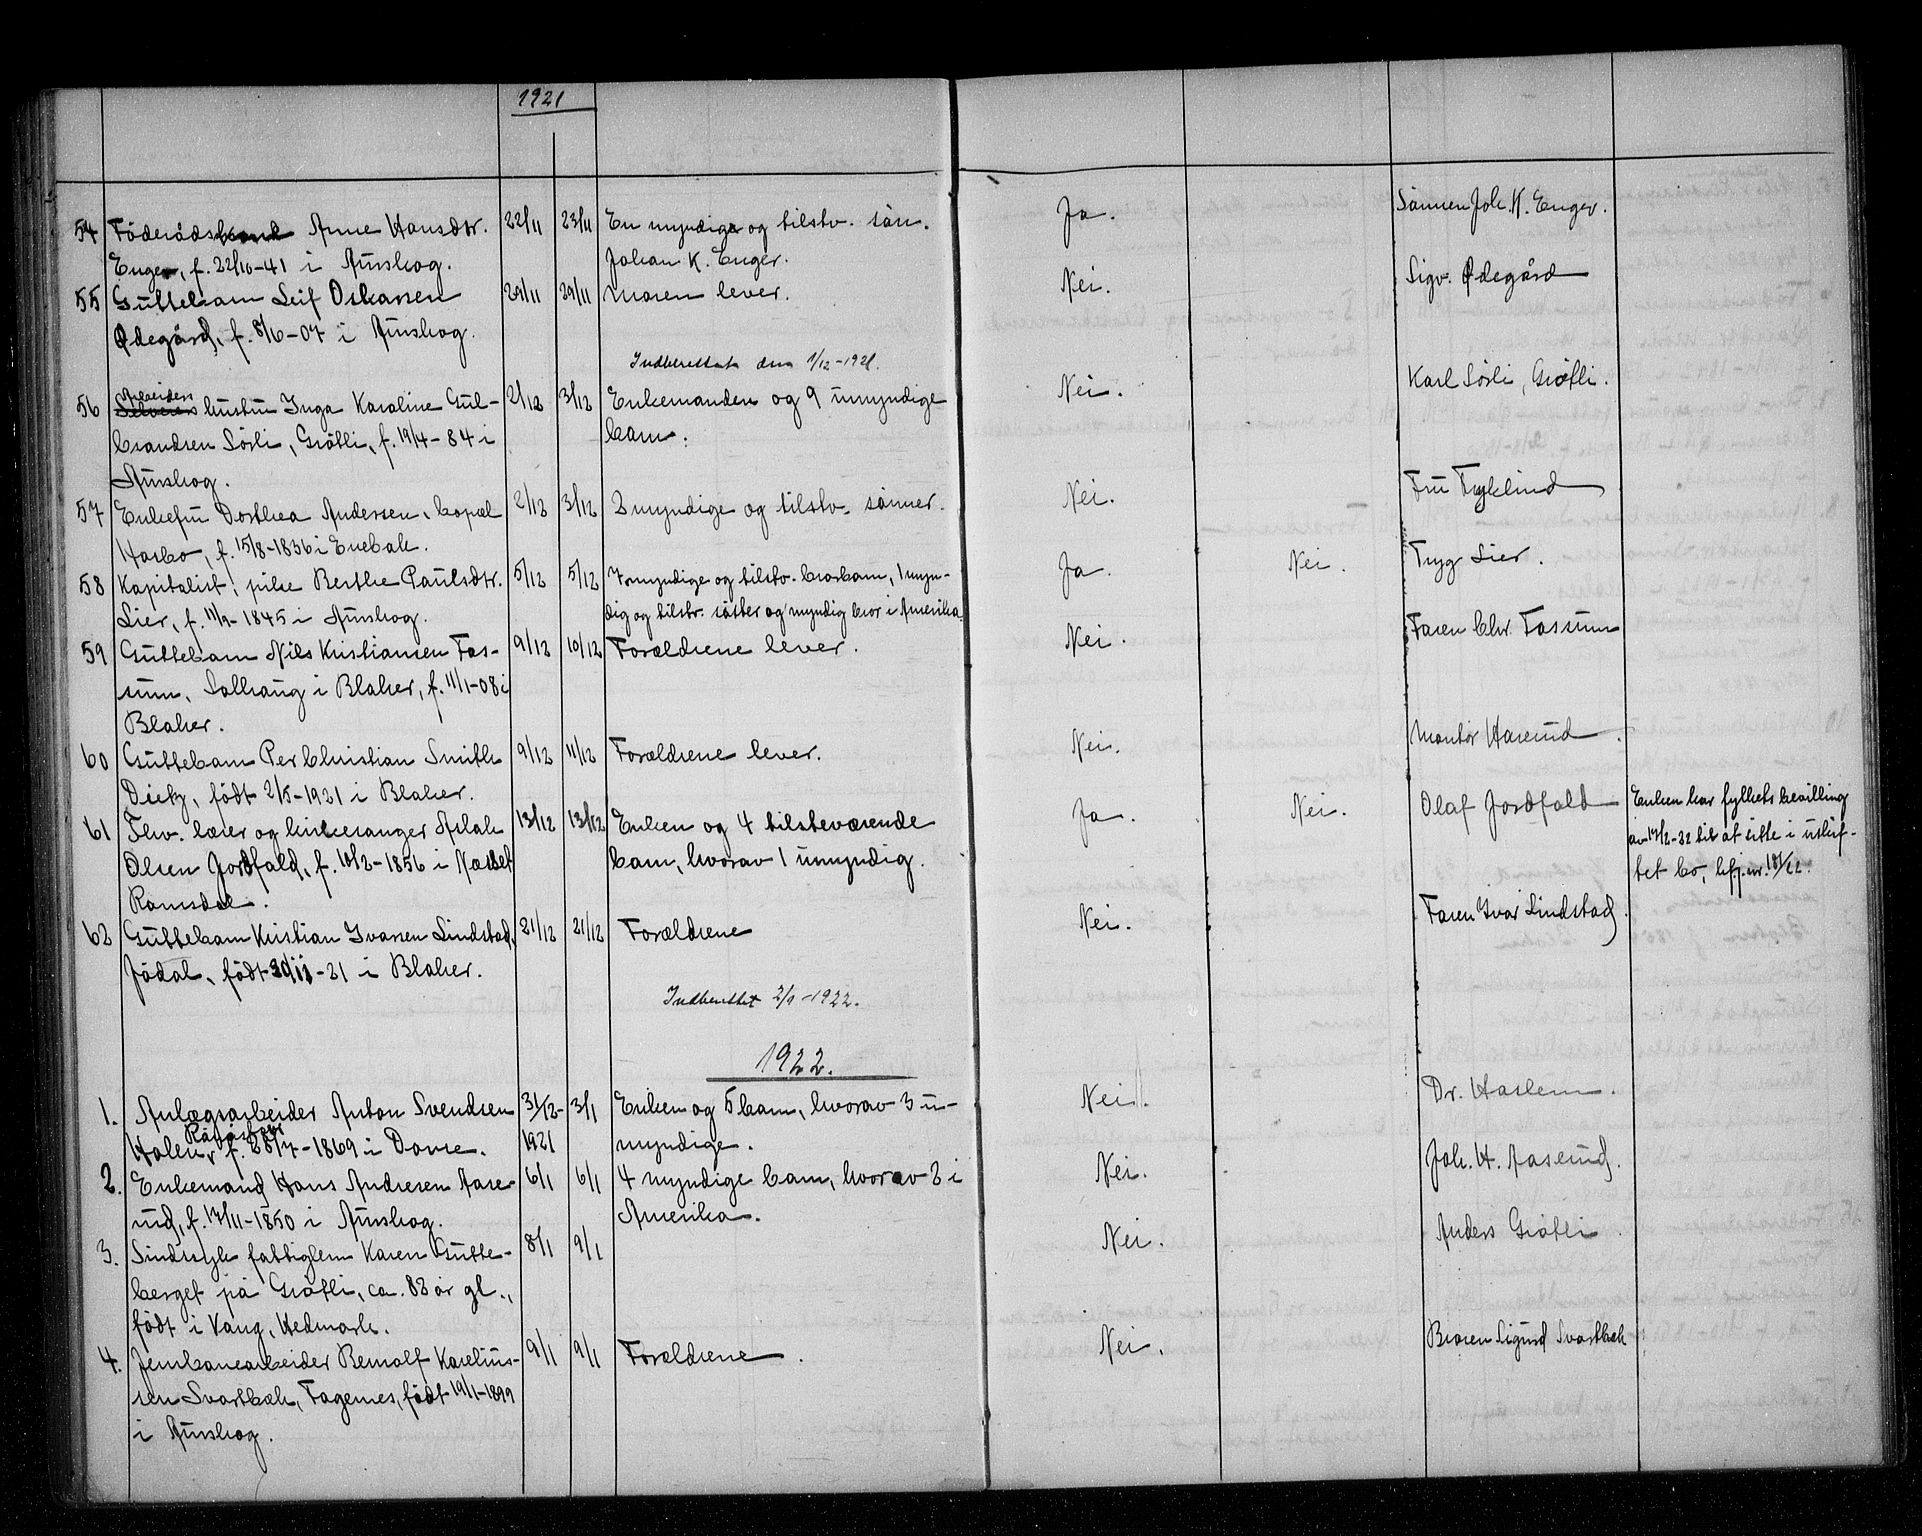 1921
54 Föderådskone Anne Hansdtr. 22/11 23/11 En myndig og tilstv. sön. Ja. Sönnen Joh. K. Enger.
Enger, f. 22/10-41 i Aurskog. Johan K. Enger.
55 Guttebarn Leif Oskarsen 29/11 29/11 Moren lever. Nei. Sigv. Ødegård
Ødegård, f. 8/6-07 i Aurskog.
Indberettet den 1/12-1921.
Arbeiders
56 hustru Inga Karoline Gul- 2/12 3/12 Enkemanden og 9 umyndige Nei. Karl Sörli, Gråtli.
brandsen Sörli, Gråtli, f. 19/4-84 i barn.
Aurskog.
57 Enkefru Dorthea Andersen, kapel 2/12 3/12 2 myndige og tilstv. sönner. Nei. Fru Fryklind
Harbo, f. 15/8-1836 i Enebak.
58 Kapitalist, pike Berthe Paulsdtr. 5/12 5/12 7 myndige og tilstv. brorbarn, 1 myn- Ja. Nei. Tryg Lier.
Lier, f. 11/9-1845 i Aurskog. dig og tilstv. söster og myndig bror i Amerika.
59 Guttebarn Nils Kristiansen Fos- 9/12 10/12 Forældrene lever. Nei. Faren Chr. Fossum
sum, Solhaug i Blaker, f. 11/1-08 i
Blaker.
60 Guttebarn Per Christian Smith 9/12 11/12 Forældrene lever. Nei. Montör Harerud.
Dietz, födt 2/5-1921 i Blaker.
61 Fhv. lærer og kirkesanger Aslak 13/12 13/12 Enken og 4 tilstedeværende Ja. Nei. Olaf Jordfald Enken har fylkets bevilling
Olsen Jordfald, f. 10/2-1856 i Nesset barn, hvorav 1 umyndig. av 17/2-22 til at sitte i uskif-
Romsdal. tet bo,
62 Guttebarn Kristian Ivarsen Lindstad, 21/12 21/12 Forældrene Nei. Faren Ivar Lindstad.
Jödal, födt 30/11-21 i Blaker.
Indberettet 2/1-1922.
1922.
1. Anlægsarbeider Anton Svendsen 31/12- 3/1 Enken og 5 barn, hvorav 3 u- Nei. Dr. Haslem.
Holen, f. 28/7-1869 i Dovre. 1921 myndige.
2. Enkemand Hans Andresen Aase- 6/1 6/1 4 myndige barn, hvorav 2 i Nei. Joh. H. Aaserud.
rud, f. 17/11-1850 i Aurskog. Amerika.
3. Sindssyk fattiglem Karen Gutte- 8/1 9/1 Nei. Anders Gråtli.
berget på Gråtli, ca. 82 år gl.,
födt i Vang, Hedmark.
4. Jernbanearbeider Bernolf Karelius- 9/1 9/1 Forældrene. Nei. Broren Sigurd Svartbæk
sen Svartbæk, Fagernes, födt 19/1-1899
i Aurskog.